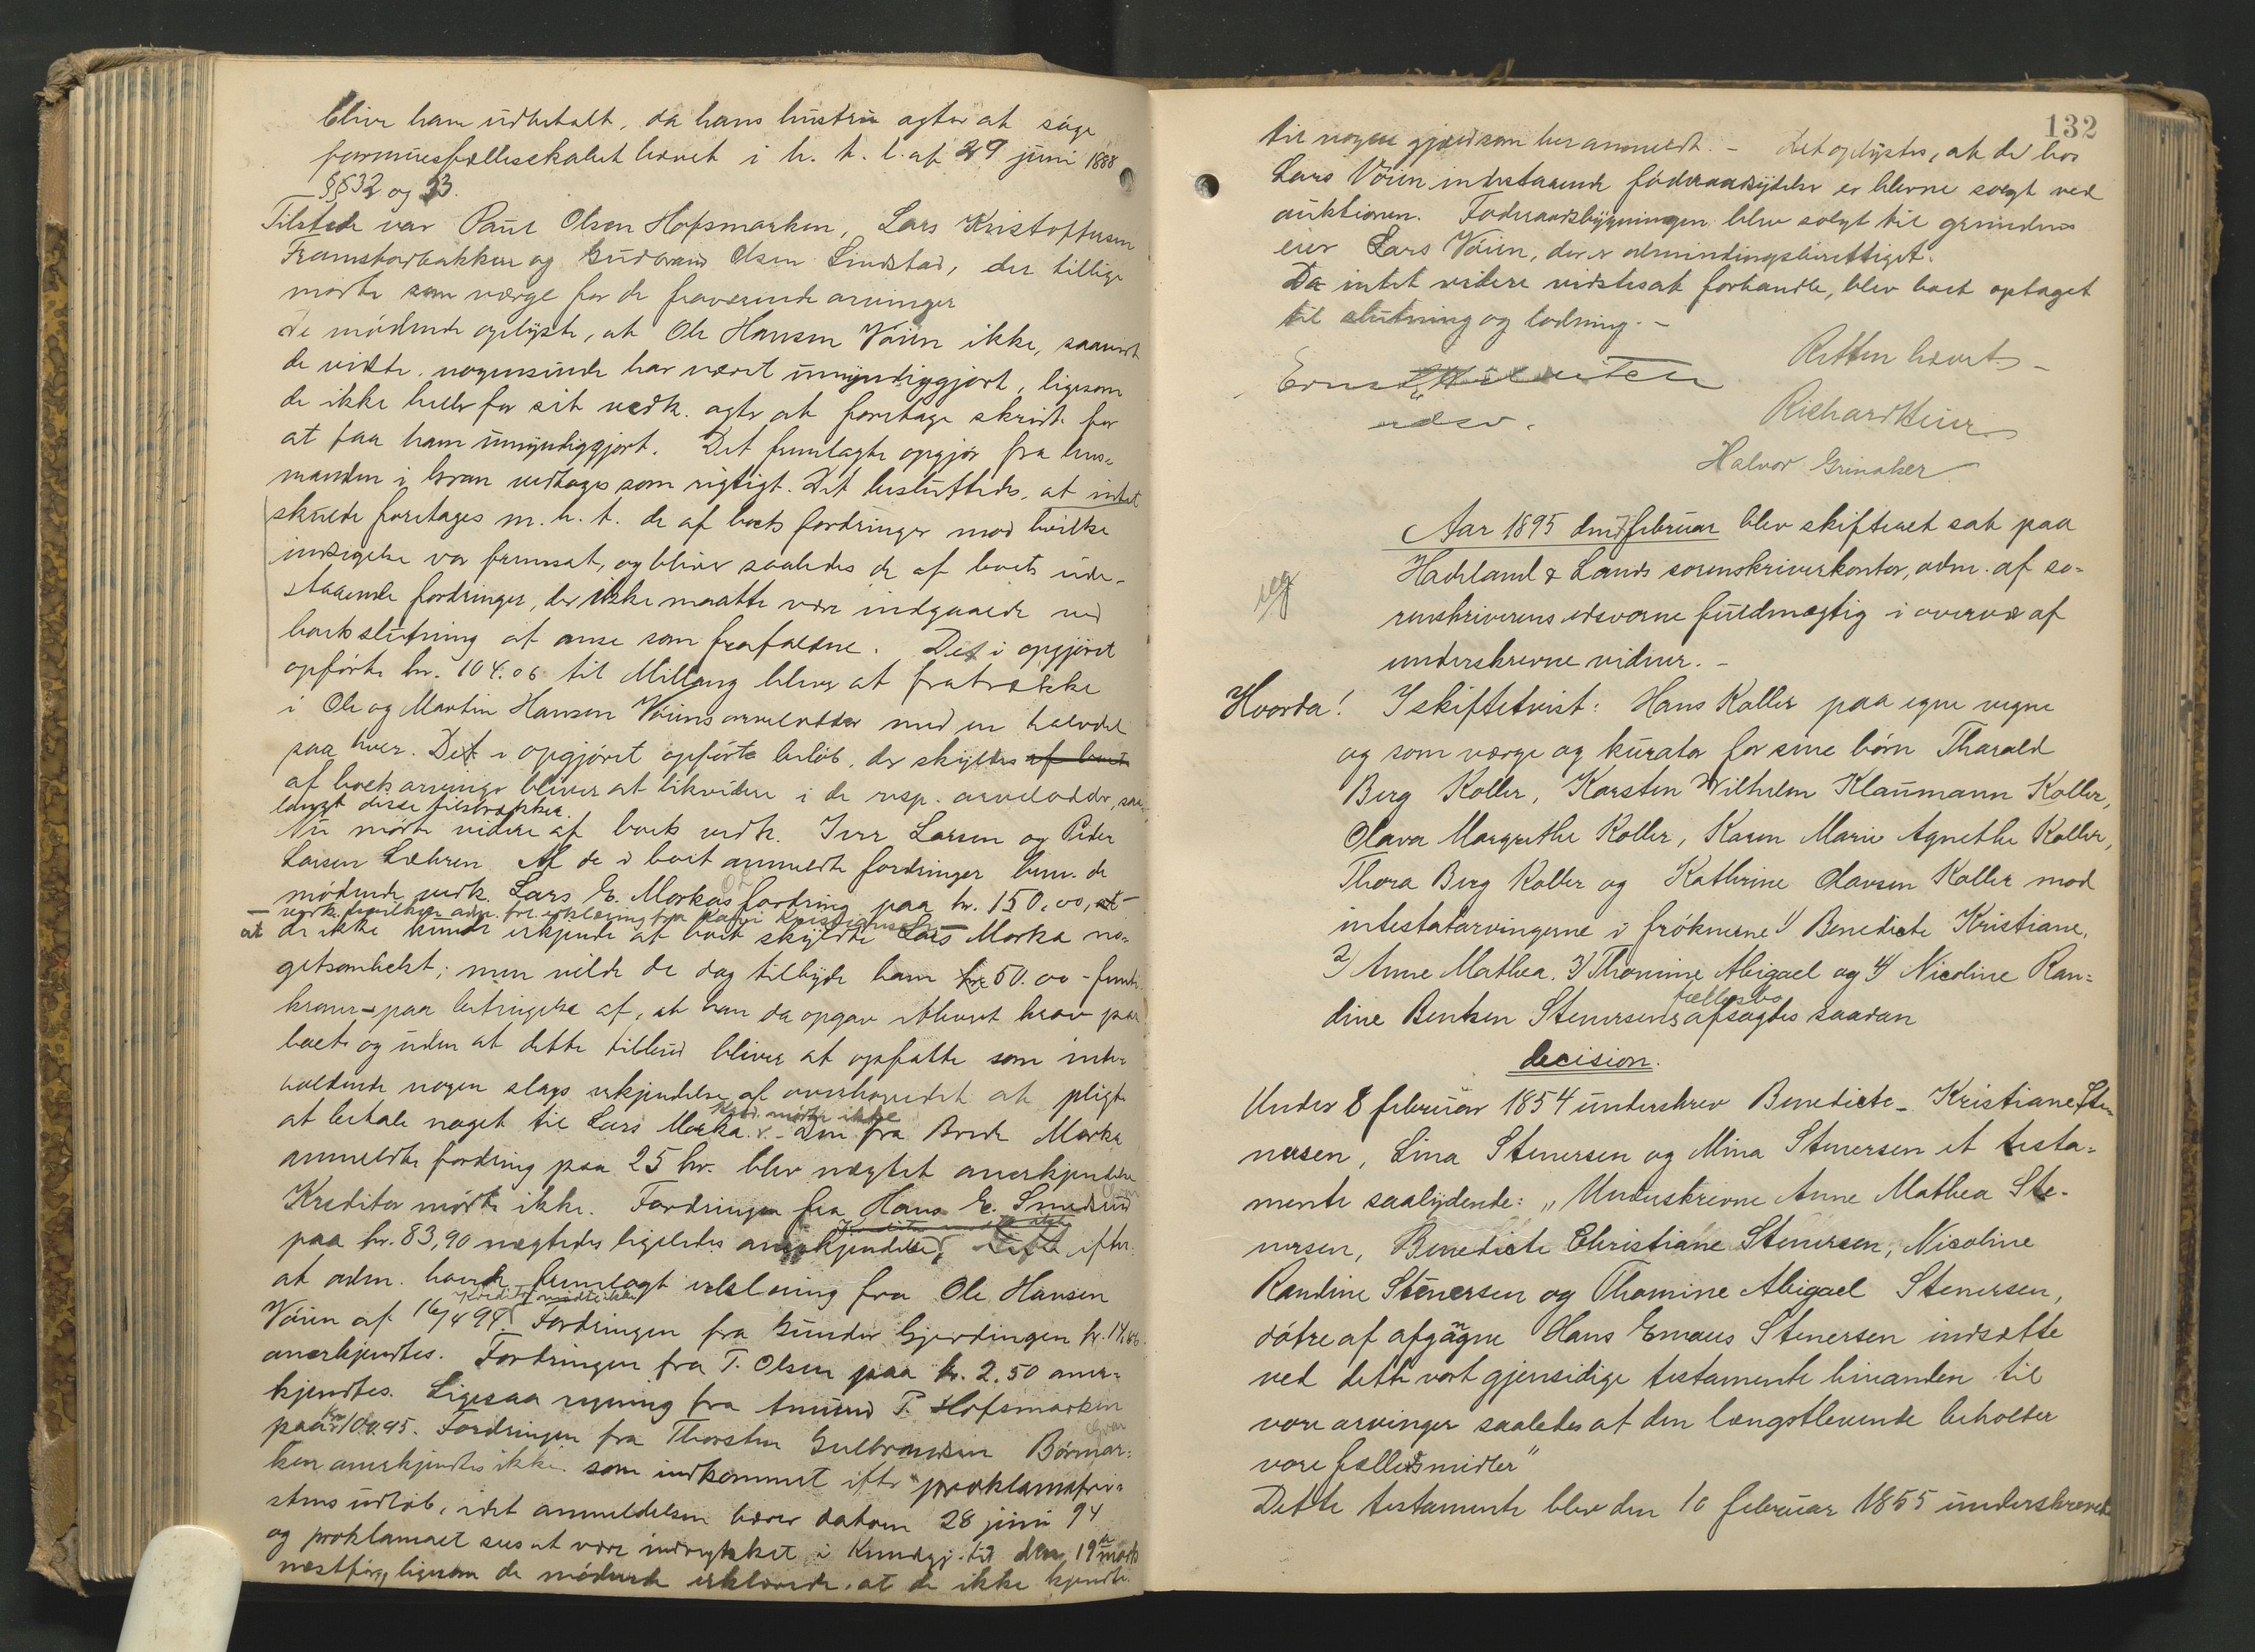 blive ham udbetalt, da hans hustru agter at søge
formuesfællesskabet hævet i h. t. l. af 29 juni 1888
§§ 32 og 33.
Tilstede var Paul Olsen Hofsmarken, Lars Kristoffersen
Framstadbakken og Gudbrand Olsen Lindstad, der tillige
mødte som værge for de fraværende arvinger
De mødende oplyste, at Ole Hansen Vøien ikke, saavidt
de vidste, nogensinde har været umyndiggjort, ligesom
de ikke heller for sit vedk. agter at foretage skridt for
at faa ham umyndiggjort. Det fremlagte opgjør fra lens-
manden i Gran vedtages som rigtigt. Det besluttedes, at intet
skulde foretages m. h. t. de af boets fordringer mod hvilke
indsigelse var fremsat, og bliver saaledes de af boets ude-
staaende fordringer, der ikke maatte være indgaaede ved
boets slutning at anse som frafaldne. Det i opgjøret
opførte kr. 104.06 til Millang bliver at fratrække
i Ole og Martin Hansen Vøiens arvelodder med en halvdel
paa hver. Det i opgjøret opførte beløb, der skyldes af boets
af boets arvinger bliver at likvidere i de resp. arvelodder, saa-
langt disse tilstrækker.
Nu mødte videre af boets vedk. Iver Larsen og Peder
Larsen Løhren. Af de i boet anmeldte fordringer bem. de
mødende vedk. Lars E. Morkas fordring paa kr. 150,00, at
— vedk. hvilken adm. frl. erklæring fra Kari Kristiansen —
at de ikke kunde erkjende at boet skyldte Lars Morka no-
getsomhelst; men vilde de dog tilbyde ham kr. 50.00 - femti
kroner - paa betingelse af, at han da opgav ethvert krav paa
boet og uden at dette tilbud bliver at opfatte som inde-
holdende nogen slags erkjendelse af overhovedet at pligte
at betale noget til Lars Morka. Kred. mødte ikke - Den fra Brede Morka
anmeldte fordring paa 25 kr. blev nægtet anerkjendelse
Kreditor mødte ikke. Fordringen fra Hans E. Smedsrud
paa kr. 83,90 nægtedes ligeledes anerkjendelse, efter
at adm. havde fremlagt erklæring fra Ole Hansen
Vøien af 16/4 94. Kreditor mødte ikke Fordringen fra Gunder Gjerdingen kr. 14,66
anerkjendtes. Fordringen fra T. Olsen paa kr. 2.50 aner-
kjendtes. Ligesaa regning fra Amund P. Hofsmarken
paa kr. 100.95. Fordringen fra Thorsten Gulbrandsen Børmar-
ken anerkjendtes ikke som indkommet efter proklamafri-
stens udløb, idet anmeldelsen bærer datum 28 juni 94
og proklamaet sees at være indrykket i Kundgj. tid. den 19de marts
næstfør, ligesom de mødende erklærede, at de ikke kjendte
132
til nogen gjæld som her anmeldt. - Det oplystes, at de hos
Lars Vøien indestaaende føderaadsydelser er blevne solgt ved
auktionen. Føderaadsbygningen blev solgt til grundens
eier Lars Vøien, der er almindingsberettiget.
Da intet videre vidstes at forhandle, blev boet optaget
til slutning og lodning. -
Retten hævet -
edsv.
Richard Heier
Halvor Grinaker
Aar 1895 den 7 februar blev skifteret sat paa
Hadeland & Lands sorenskriverkontor, adm. af so-
renskriverens edsvorne fuldmægtig i overvær af
underskrevne vidner. -
Hvorda! I skiftetvist: Hans Koller paa egne vegne
og som værge og kurator for sine børn Tharald
Berg Koller, Karsten Wilhelm Klaumann Koller,
Olava Margrethe Koller, Karen Marie Agnethe Koller,
Thora Berg Koller og Kathrine Olavsen Koller mod
intestatarvingerne i frøknerne 1) Benedicte Kristiane,
2) Anne Mathea, 3) Thomine Abigael og 4) Nicoline Ran-
dine Bentsen Stenersens fællesbo afsagdes saadan
decision.
Under 8 februar 1854 underskrev Benedicte - Kristiane Ste-
nersen, Lina Stenersen og Mina Stenersen et testa-
mente saalydende: „Underskrevne Anne Mathea Ste-
nersen, Benedicte Christiane Stenersen, Nicoline
Randine Stenersen og Thomine Abigael Stenersen,
døtre af afgangne Hans Emaus Stenersen indsætte
ved dette vort gjensidige testamente hinanden til
vore arvinger saaledes at den længstlevende beholder
vore fælledsmidler"
Dette testamente blev den 10 februar 1855 underskrevet